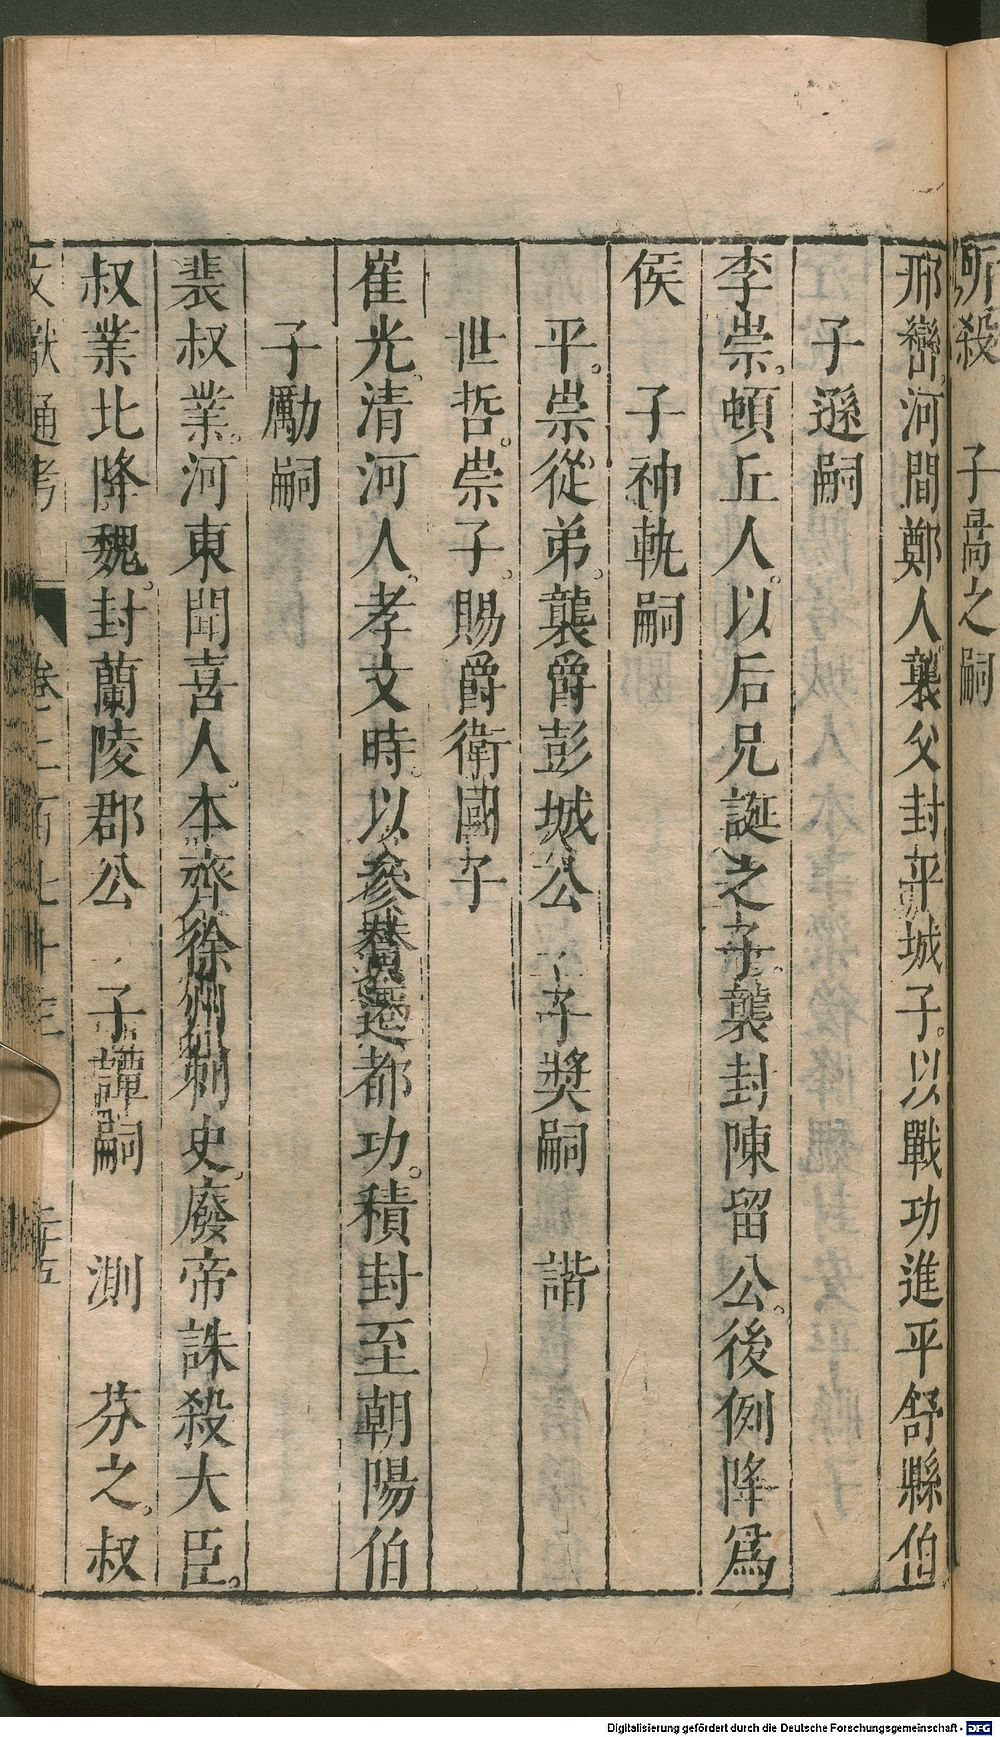 所殺　子暠之嗣
邢巒。河間鄭人。襲父封平城子。以戰功進平舒縣伯
子遜嗣
李崇。頓丘人。以后兄誕之子。襲封陳留公。後例降爲
侯　子神軌嗣
平。崇從弟。襲爵彭城公　子奬嗣　諧
世哲。崇子。賜爵衛國子
崔光。清河人。孝文時。以參贊遷都功。積封至朝陽伯
子勵嗣
裴叔業。河東聞喜人。本齊徐州刺史。廢帝誅殺大臣。
叔業北降魏。封蘭陵郡公　子譚嗣　測　芬之。叔
文獻通考　卷二百七十三　二十五
Digitalisierung gefördert durch die Deutsche Forschungsgemeinschaft - DFG